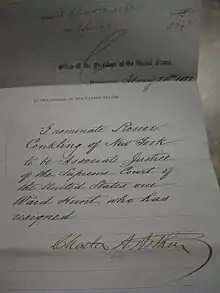 Office of the President of the United States
February 24th 1882
I nominate Roscoe
Conkling of New York
to be Associate Justice
of the Supreme Court of
the United States vice
Ward Hunt, who has
resigned
Chester A. Arthur